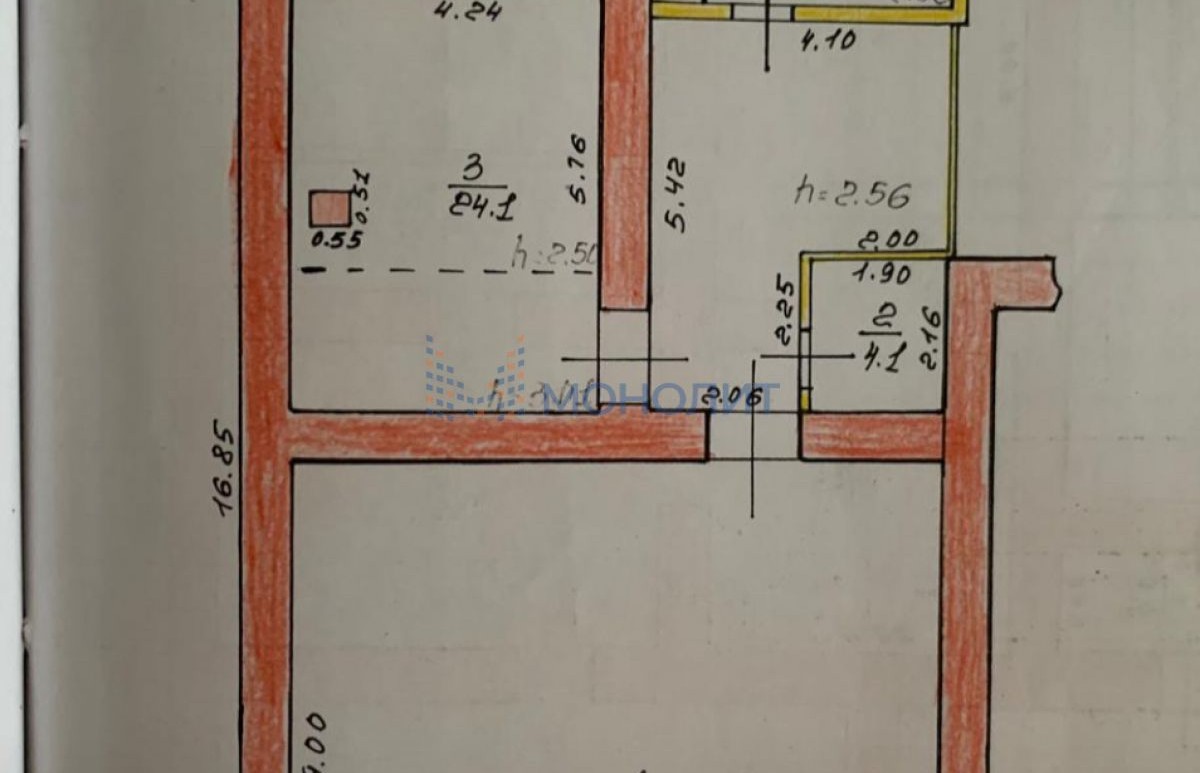 4.24
4.10
3
24.1
5.76
5.42
0.51
0.55
h=2.56
h=2.50
2.00
1.90
2.25
2
4.1
2.16
МОНОЛИТ
2.06
16.85